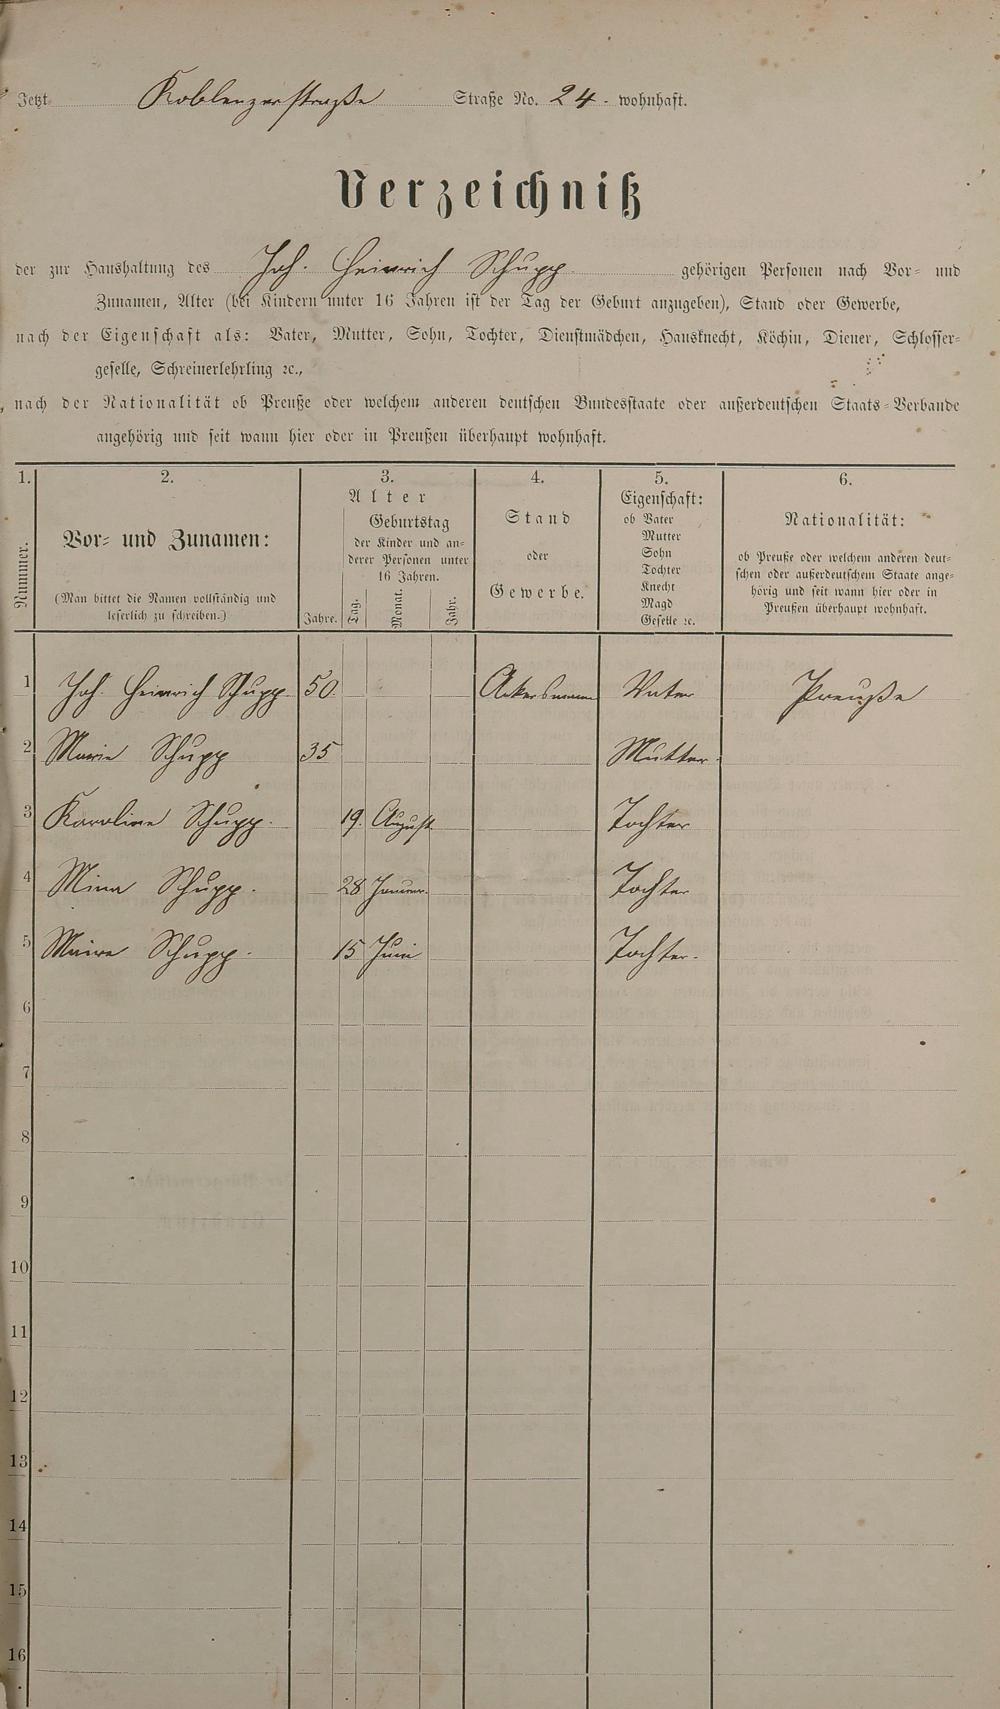 Jetzt Koblenzerstraße Straße No. 24. wohnhaft.
Verzeichniß
der zur Haushaltung des Joh. Heinrich Schupp gehörigen Personen nach Vor- und
Zunamen, Alter (bei Kindern unter 16 Jahren ist der Tag der Geburt anzugeben), Stand oder Gewerbe,
nach der Eigenschaft als: Vater, Mutter, Sohn, Tochter, Dienstmädchen, Hausknecht, Köchin, Diener, Schlosser-
geselle, Schreinerlehrling ꝛc.,
nach der Nationalität ob Preuße oder welchem anderen deutschen Bundesstaate oder außerdeutschen Staats-Verbande
angehörig und seit wann hier oder in Preußen überhaupt wohnhaft.
1. 2. 3. 4. 5. 6.
Nummer.
Vor- und Zunamen:
(Man bittet die Namen vollständig und
leserlich zu schreiben.)
Alter
Jahre.
Geburtstag
der Kinder und an-
derer Personen unter
16 Jahren.
Tag. Monat. Jahr.
Stand
oder
Gewerbe.
Eigenschaft:
ob Vater
Mutter
Sohn
Tochter
Knecht
Magd
Geselle ꝛc.
Nationalität:
ob Preuße oder welchem anderen deut-
schen oder außerdeutschem Staate ange-
hörig und seit wann hier oder in
Preußen überhaupt wohnhaft.
1 Joh. Heinrich Schupp 50 Ackersmann Vater Preuße
2 Marie Schupp 35 Mutter.
3 Karoline Schupp. 19. August Tochter
4 Mina Schupp. 28 Januar. Tochter
5 Schupp. 15 Juni Tochter.
6
7
8
9
10
11
12
13
14
15
16